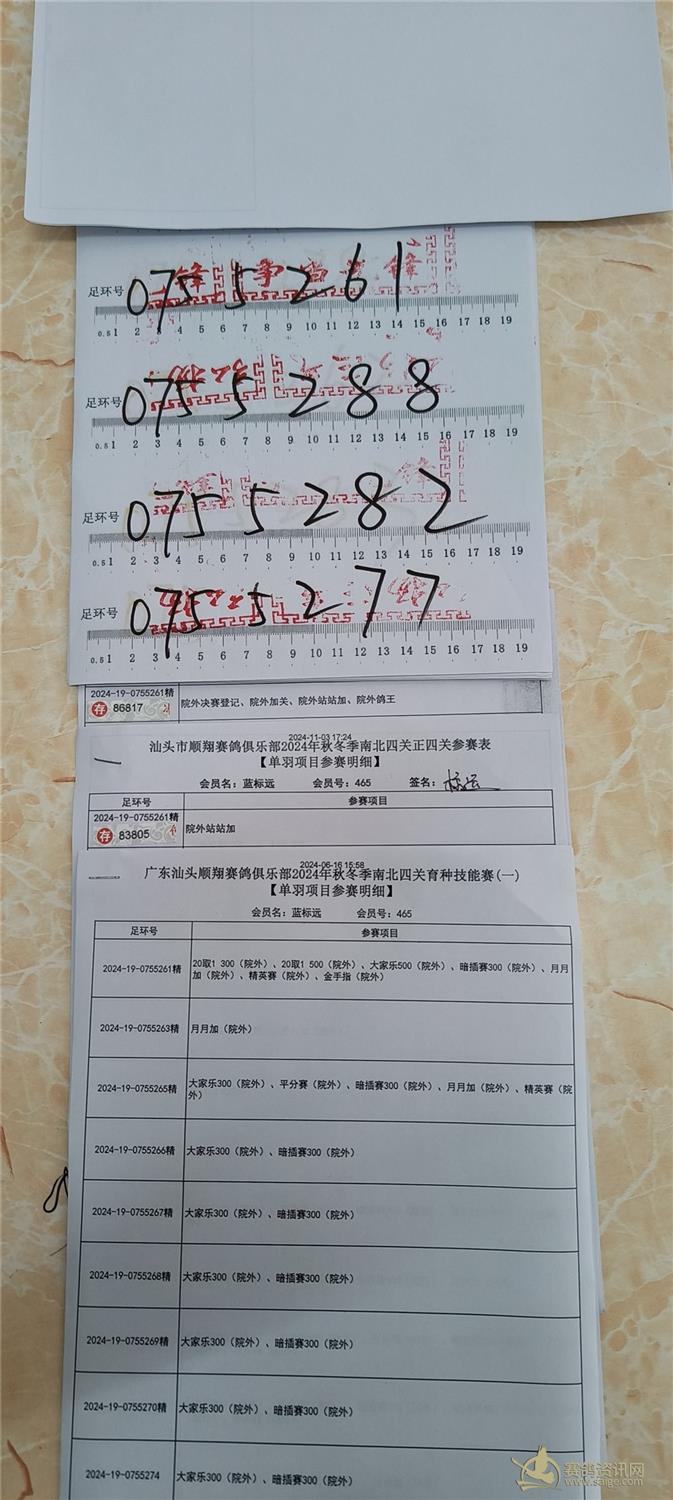 足环号 0755261
0.5 1 2 3 4 5 6 7 8 9 10 11 12 13 14 15 16 17 18 19
足环号 0755288
0.5 1 2 3 4 5 6 7 8 9 10 11 12 13 14 15 16 17 18 19
足环号 0755282
0.5 1 2 3 4 5 6 7 8 9 10 11 12 13 14 15 16 17 18 19
足环号 0755277
0.5 1 2 3 4 5 6 7 8 9 10 11 12 13 14 15 16 17 18 19
2024-19-0755261精
存 86817
院外决赛登记、院外加关、院外站站加、院外鸽王
2024-11-03 17:24
汕头市顺翔赛鸽俱乐部2024年秋冬季南北四关正四关参赛表
【单羽项目参赛明细】
会员名：蓝标远 会员号：465 签名：
足环号 参赛项目
2024-19-0755261精
存 83805
院外站站加
2024-06-16 15:58
广东汕头顺翔赛鸽俱乐部2024年秋冬季南北四关育种技能赛(一)
【单羽项目参赛明细】
会员名：蓝标远 会员号：465
足环号 参赛项目
2024-19-0755261精 20取1 300（院外）、20取1 500（院外）、大家乐500（院外）、暗插赛300（院外）、月月
加（院外）、精英赛（院外）、金手指（院外）
2024-19-0755263精 月月加（院外）
2024-19-0755265精 大家乐300（院外）、平分赛（院外）、暗插赛300（院外）、月月加（院外）、精英赛（院
外）
2024-19-0755266精 大家乐300（院外）、暗插赛300（院外）
2024-19-0755267精 大家乐300（院外）、暗插赛300（院外）
2024-19-0755268精 大家乐300（院外）、暗插赛300（院外）
2024-19-0755269精 大家乐300（院外）、暗插赛300（院外）
2024-19-0755270精 大家乐300（院外）、暗插赛300（院外）
2024-19-0755274 大家乐300（院外）、暗插赛300（院外）
赛鸽资讯网
www.saige.com